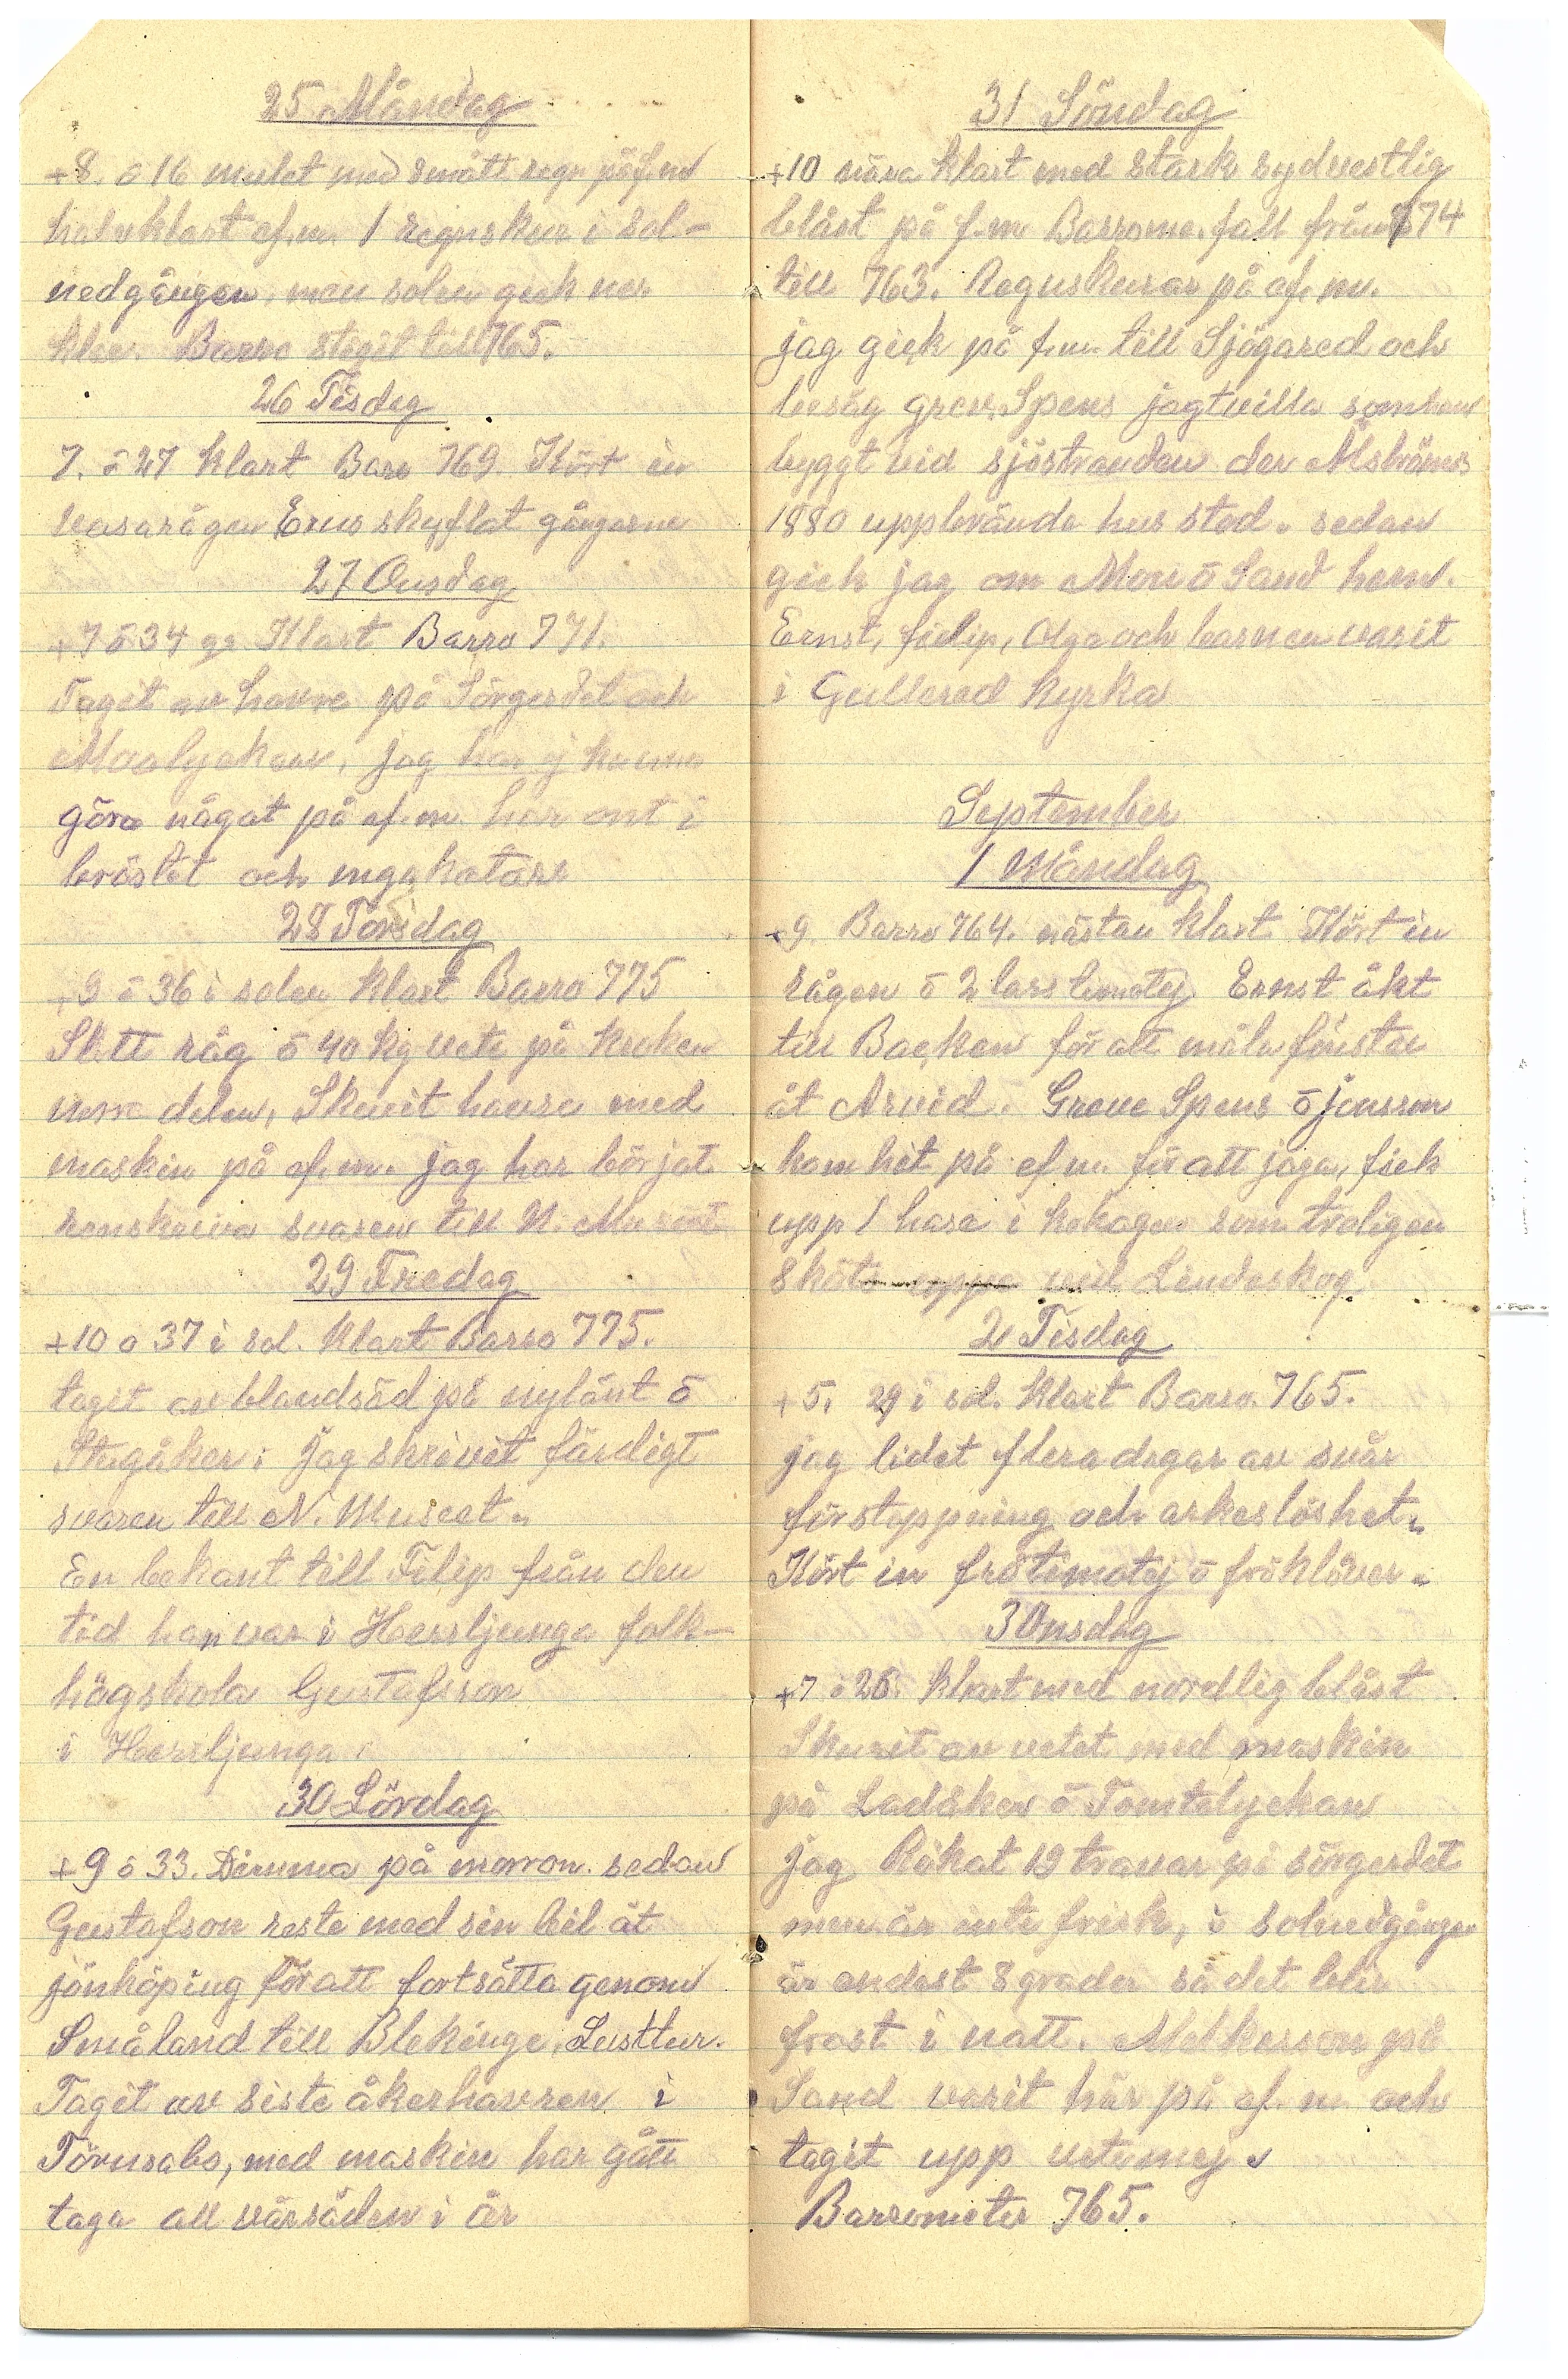 25 Måndag
+8. ō 16 mulet med smått regn på f.m
halvklart ef.m. 1 regnskur i sol-
nedgången, men solen gick ner
klar. Barro stegit till 765.
26 Tisdag
7. ō 27 klart Baro 769. Kört in
vasarågen Erns skyflat gångarne
27 Onsdag
+7 ō 34 gr. Klart Barro 771.
Taget av havre på Sörgerdet och
jag har ej kunna
göra något på ef.m. har ont i
bröstet och magkatarr
28 Torsdag
+9 ō 36 i solen klart Barro 775
Sått råg ō 40 kg vete på kroken
norra delen, Skurit havre med
maskin på ef.m. jag har börjat
renskriva svaren till N. Museet
29 Fredag
+10 o 37 i sol. klart Barro 775.
taget av blandsäd på nylänt ō
Stugåker: jag skrivit färdigt
svaren till N. Museet.
En bekant till Filip från den
tid han var i Herrljunga folk-
högskola Gustafsson
i Herrljunga
30 Lördag
+9 ō 33. Dimma på morron. sedan
Gustafson reste med sin bil åt
jönköping för att fortsätta genom
Småland till Blekinge. Lusttur.
Tagit av siste åkerhavren i
Törnsabo, med maskin har gått
taga all vårsäden i år
31 Söndag
+10 nära klart med stark sydvestlig
blåst på f.m Barrome. fall från 774
till 763. Regnskurar på ef.m.
jag gick på f.m. till Sjögared och
besåg grev. Spens jagtvilla som han
byggt vid sjöstranden der Alströmers
1880 uppbrände hus stod. sedan
gick jag om Mon ō Sand hem.
Ernst, filip, Olga och barnen varit
i Gullered kyrka
September
1 Måndag
+9. Barro 764. nästan klart. Kört in
rågen ō 2 lass timotej Ernst åkt
till Backen för att måla fönster
åt Arvid. Greve Spens ō jonsson
kom hit på ef m. för att jaga, fick
upp 1 hare i kohagen som troligen
sköts uppe vid Lindeskog
2 Tisdag
+5. 29 i sol. klart Barro. 765.
jag lidet flera dagar av svår
förstoppning och orkeslöshet.
Kört in frötimotej ō fröklöver.
3 Onsdag
+7 ō 26. klart med nordlig blåst
Skurit av vetet med maskin
på Ladåker ō Tomtelyckan
jag Rökat 12 travar på sörgerdet
men är inte frisk, i solnedgången
är endast 8 grader så det blir
frost i natt. Melkerson på
Sand varit här på ef.m. och
tagit upp vetemej.
Barrometer 765.